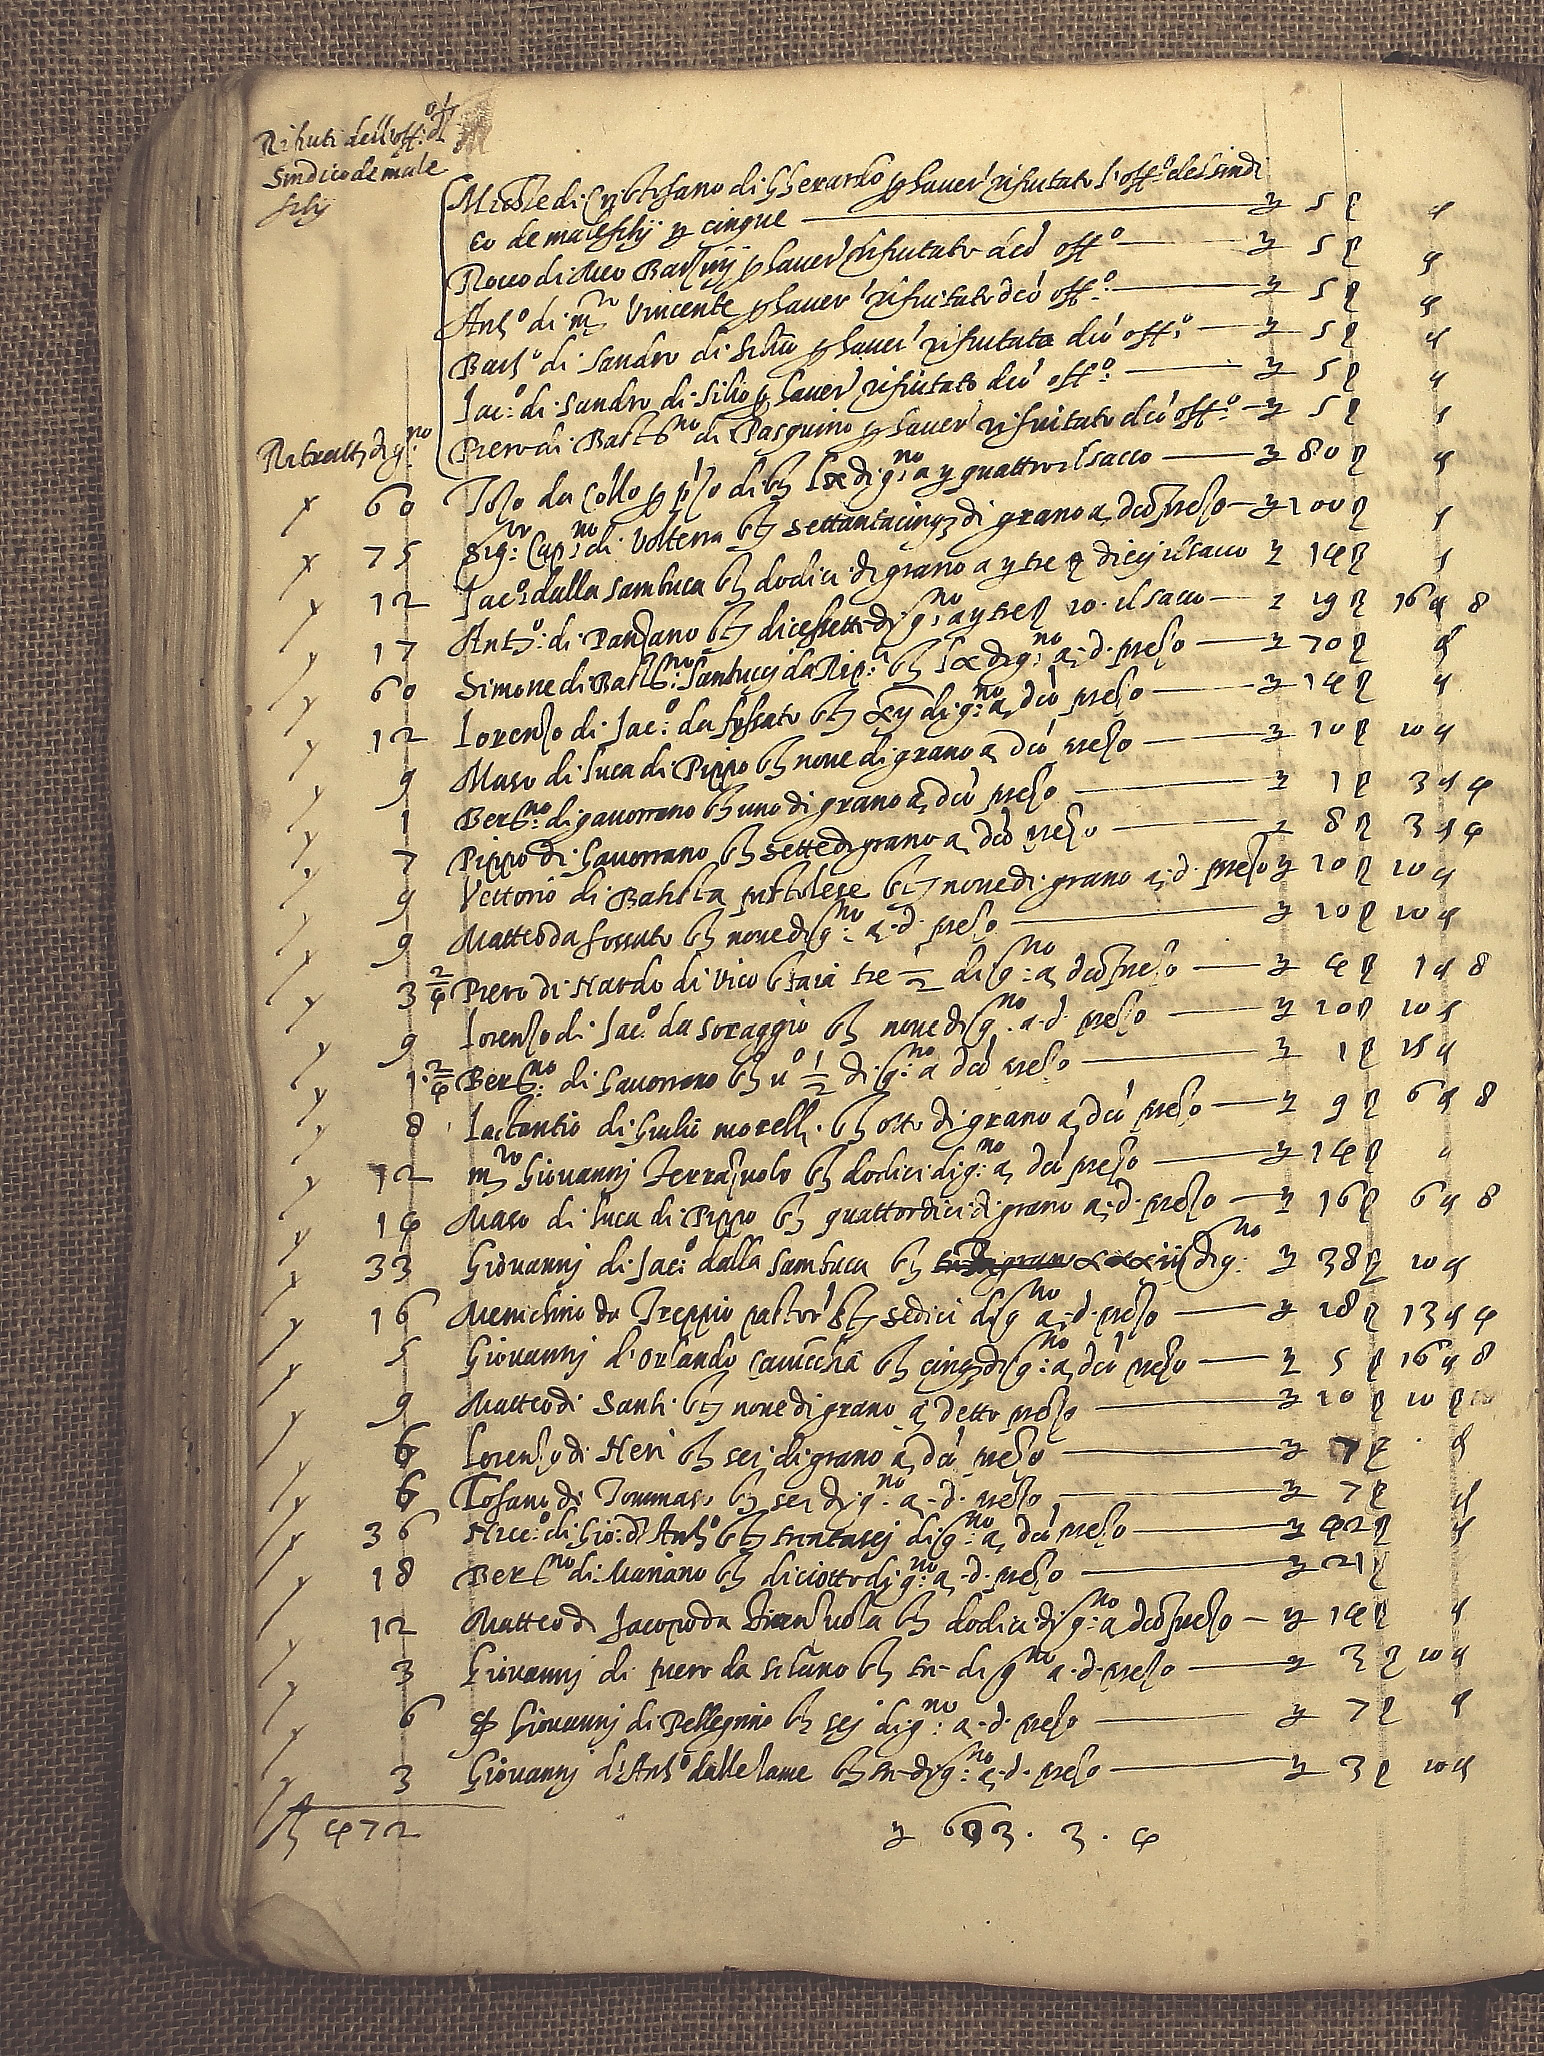 Rifiuti dell'off.o di
Sindico de male
fitij
Michele di Christofano di Gherardo p haver' rifiutato l'off.o del sindi
co de malefitij £ cinque £ 5 ß ₰
Rocco di Meo £ 5 ß ₰
p haver' rifiutato dco' off.o
Ant.o di m.o Vincente p haver' rifiutato dco' off.o £ 5 ß ₰
Bart.o di Sandro di Silio p haver' rifiutato dco' off.o £ 5 ß ₰
Jac.o di Sandro di Silio p haver' rifiutato dco' off.o £ 5 ß ₰
Piero di Bast.no di Pasquino p haver' rifiutato dco' off.o £ 5 ß ₰
Ritratti di g.no
60 da Collo di st. lx di g.no a £ quattro il sacco £ 80 ß ₰
75 Sig.or Cap.no di Volterra st. settantacinq di grano a dco prezo £ 100 ß ₰
12 Jac.o dalla Sambuca st. dodici di grano a £ tre ß diecj il sacco £ 14 ß ₰
17 Ant.o di Panzano st. dicessette di g.no a £ tre ß 10 il sacco £ 19 ß 16 ₰ 8
60 Simone di Bast.no Santuccj da st. lx di g.no a d. prezo £ 70 ß ₰
12 Lorenzo di Jac.o da fossato st. xij di g.no a dco' prezo £ 14 ß ₰
9 Maso di Luca di Pippo st. nove di grano a dco' prezo £ 10 ß 10 ₰
1 Bert.no di gavorrano st. uno di grano a dco' prezo £ 1 ß 3 ₰ 4
7 Pippo di Gavorrano st. sette di grano a dco' prezo £ 8 ß 3 ₰ 4
9 Vettorio di Batista pistolese st. nove di grano a d. prezo £ 10 ß 10 ₰
9 Matteo da fossato st. nove di g.no a d. prezo £ 10 ß 10 ₰
3 2/4 Piero di Nardo di Vico staia tre 1/2 di g.no a dco prezo £ 4 ß 1 ₰ 8
9 Lorenzo di Jac.o da Soraggio st. nove di g.no a d. prezo £ 10 ß 10 ₰
1 2/4 Bert.no di Gavorrano st. u.o 1/2 di g.no a dco' prezo £ 1 ß 15 ₰
8 Lattantio di Giulio morellj st. otto di grano a dco' prezo £ 9 ß 6 ₰ 8
12 m.ro Giovannj Terrazuolo st. dodici di g.no a dco' prezo £ 14 ß ₰
14 Maso di Luca di Pippo st. quattordici di grano a d. prezo £ 16 ß 6 ₰ 8
33 Giovannj di Jac.o dalla Sambuca st. xxxiij di g.no £ 38 ß 10 ₰
16 Menichino da Treppio pastor' st. sedici di g.no a d. prezo £ 18 ß 13 ₰ 4
5 Giovannj d'Orlando st. cinq di g.no a dco' prezo £ 5 ß 16 ₰ 8
9 Matteo di Santi st. nove di grano a detto prezo £ 10 ß 10 ₰
6 Lorenzo di Neri st. sei di grano a dco' prezo £ 7 ß ₰
6 Tofano di Tommaso st. sei di g.no a d. prezo £ 7 ß ₰
36 Nicc.o di Gio: d'Ant.o st. trentasej di g.no a dco' prezo £ 42 ß ₰
18 Bert.no di Mariano st. diciotto di g.no a d. prezo £ 21 ß
12 Matteo di Jacopo da st. dodici di g.no a dco prezo £ 14 ß ₰
3 Giovannj di piero da Silano st. tre di g.no a d. prezo £ 3 ß 10 ₰
6 Giovannj di Pellegrino st. sej di g.no a d. prezo £ 7 ß ₰
3 Giovannj d'Ant.o dalle lame st. tre di g.no a d. prezo £ 3 ß 10 ₰
st. 472 £ 3 . 4